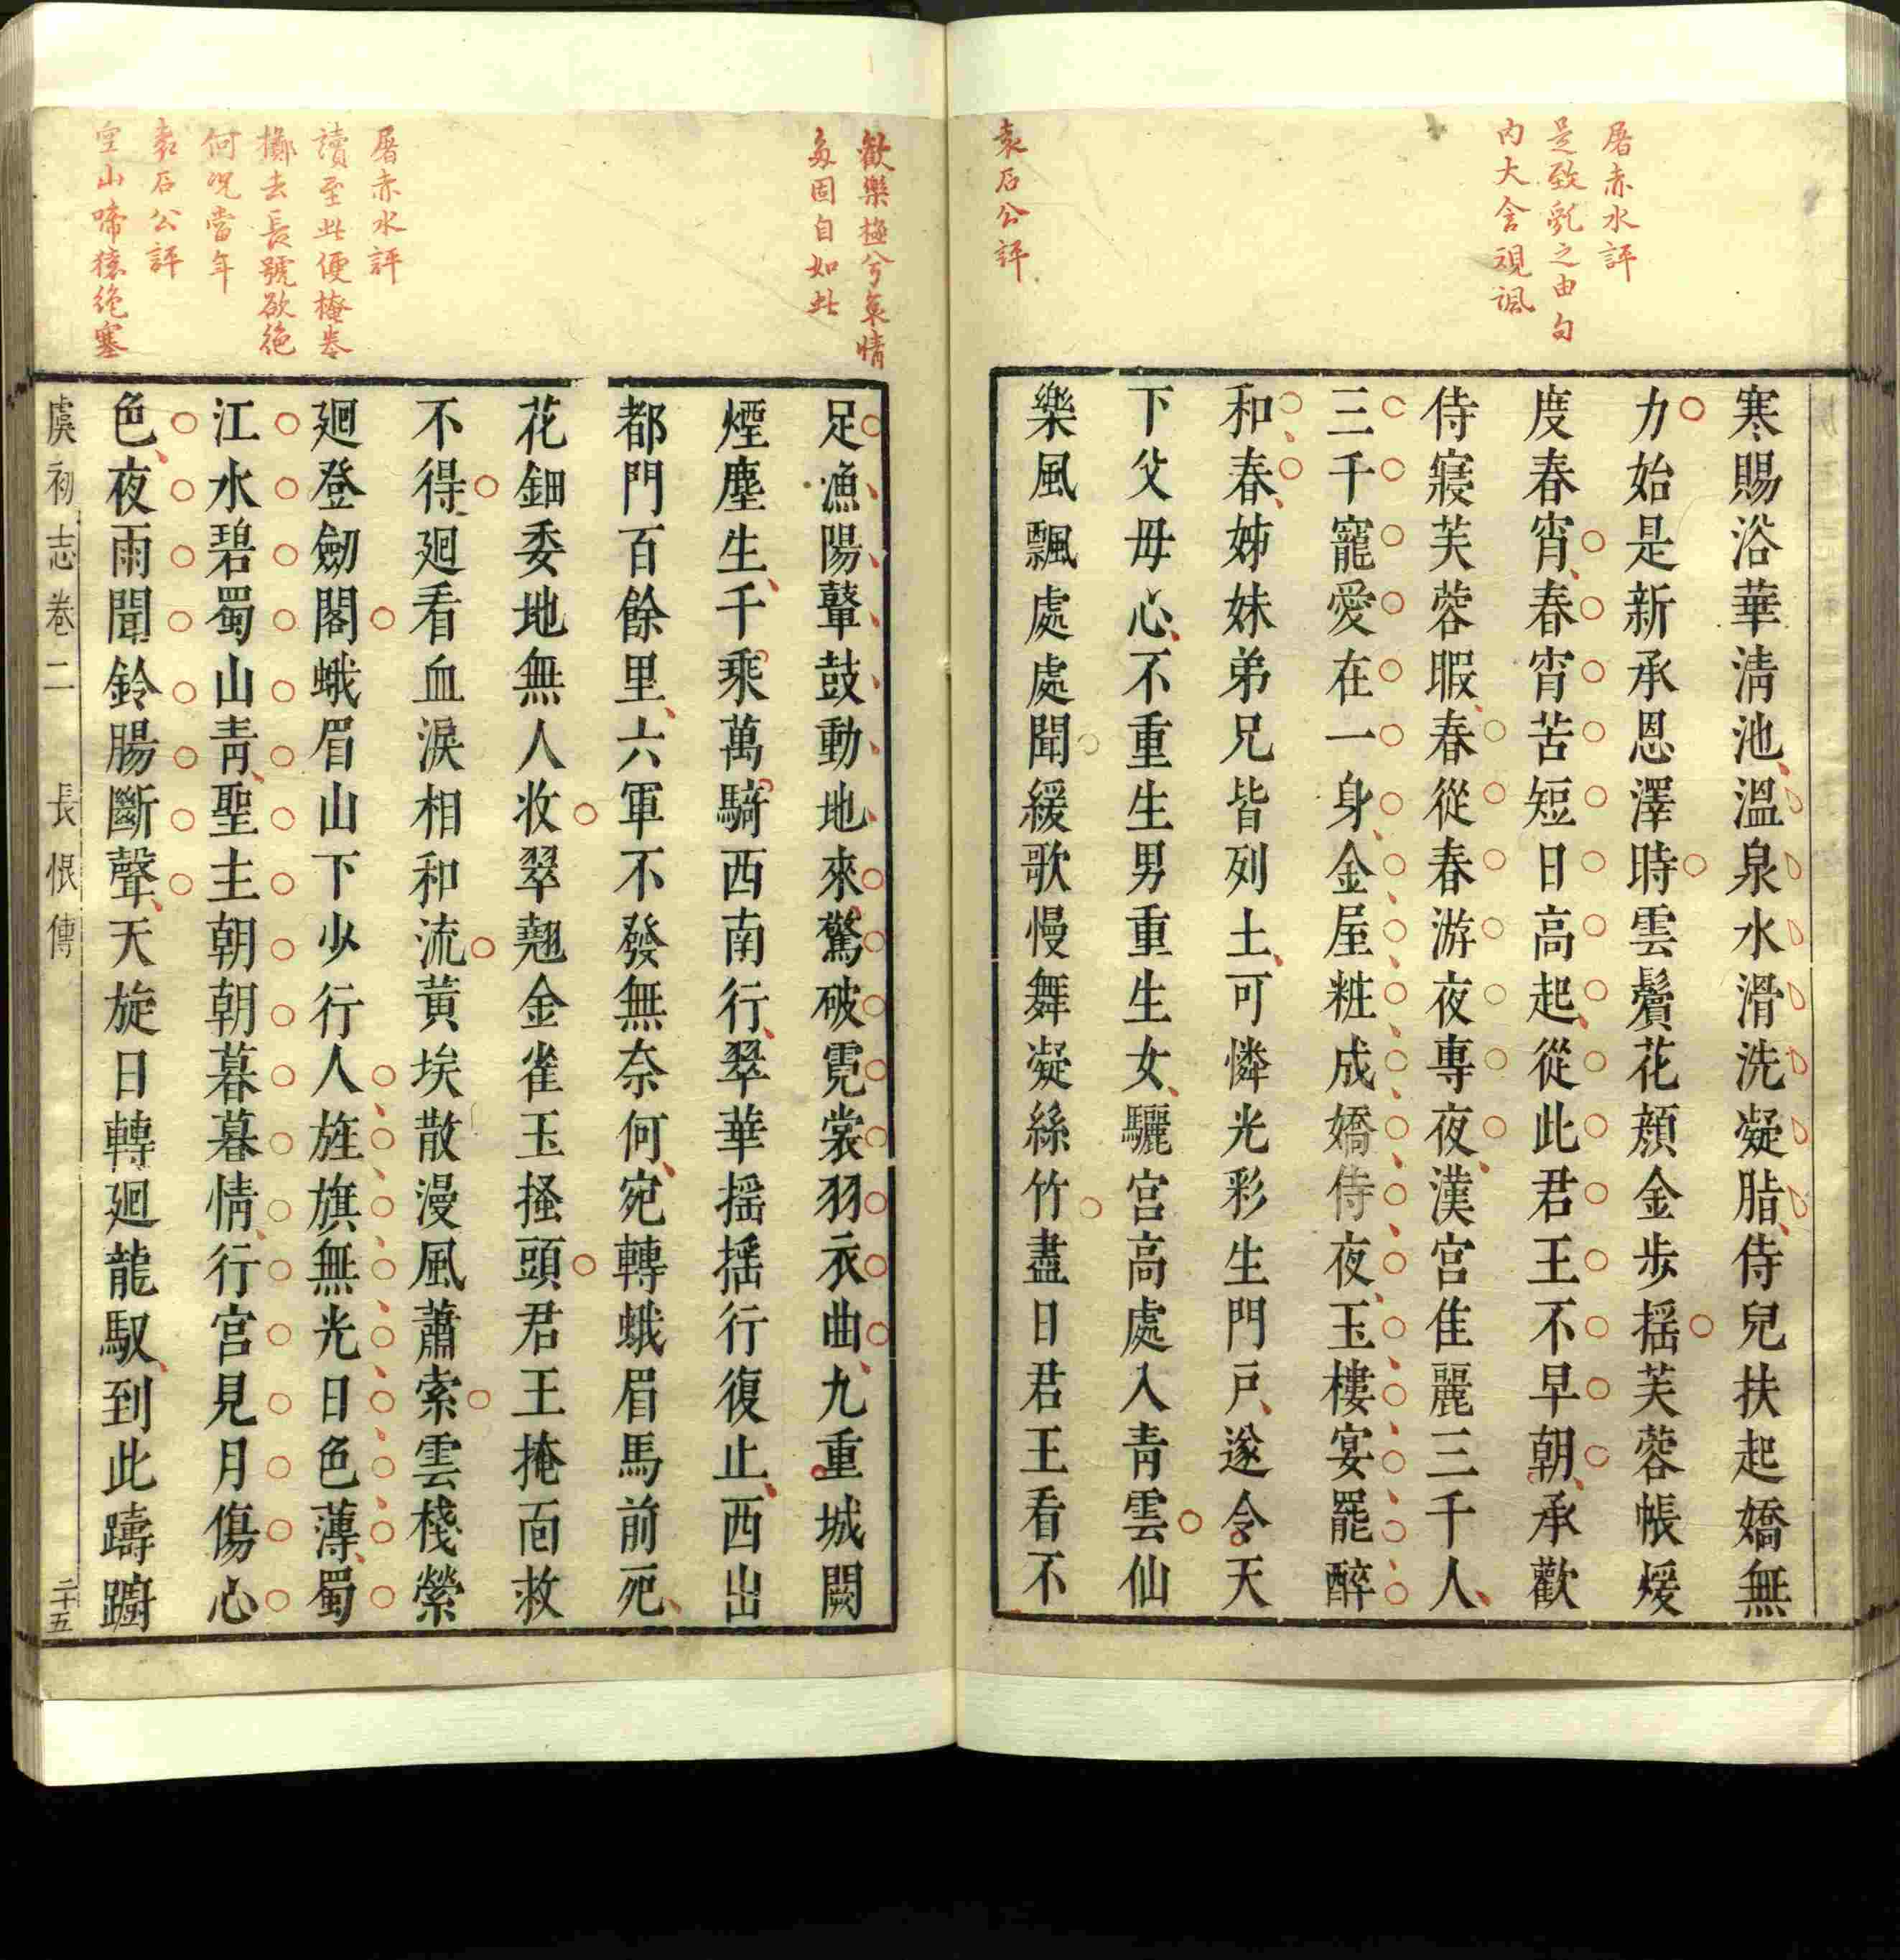 屠赤水評
是致亂之由句
內大含規諷
袁石公評
寒賜浴華淸池溫泉水滑洗凝脂侍兒扶起嬌無
力始是新承恩澤時雲鬢花顔金步揺芙蓉帳煖
度春宵春宵苦短日高起從此君王不早朝承歡
侍寢芙蓉暇春從春游夜專夜漢宮佳麗三千人
三千寵愛在一身金屋粧成嬌侍夜玉樓宴罷醉
和春姊妹弟兄皆列土可憐光彩生門戸遂令天
下父母心不重生男重生女驪宮高處入青雲仙
樂風飄處處聞緩歌慢舞凝絲竹盡日君王看不
歡樂極兮哀情
多固自如此
屠赤水評
讀至此便掩卷
擲去長號欲絶
何況當年
袁石公評
空山啼猿絶塞
足漁陽鼙鼓動地來驚破霓裳羽衣曲九重城闕
煙塵生千乘萬騎西南行翠華揺揺行復止西出
都門百餘里六軍不發無奈何宛轉蛾眉馬前死
花鈿委地無人收翠翹金雀玉搔頭君王掩面救
不得廻看血淚相和流黃埃散漫風蕭索雲棧縈
廻登劒閣蛾眉山下少行人旌旗無光日色薄蜀
江水碧蜀山青聖主朝朝暮暮情行宮見月傷心
色夜雨聞鈴腸斷聲天旋日轉廻龍馭到此躊躇
虞初志卷二 長恨傳 二十五